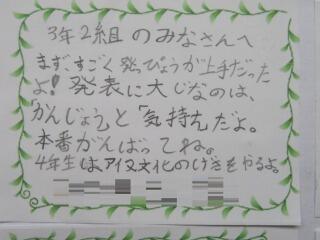 3年2組のみなさんへ
まず、すごく発っぴょうが上手だった
よ!発表に大じなのは、
「かんじょう」と「気持ち」だよ。
本番がんばってね。
4年生はアイヌ文化のげきをやるよ。